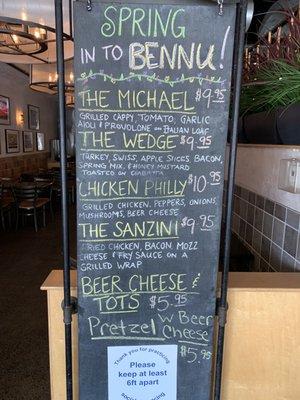 SPRING
IN TO BENNU!
THE MICHAEL $9.95
GRILLED CAPPY, TOMATO, GARLIC
AIOLI & PROVOLONE ON ITALIAN LOAF
THE WEDGE $9.95
TURKEY, SWISS, APPLE SLICES, BACON,
SPRING MIX, & HONEY MUSTARD
TOASTED ON CIABATTA
CHICKEN PHILLY $10.95
GRILLED CHICKEN, PEPPERS, ONIONS,
MUSHROOMS, BEER CHEESE
THE SANZINI $9.95
FRIED CHICKEN, BACON, MOZZ
CHEESE & FRY SAUCE ON A
GRILLED WRAP
BEER CHEESE &
TOTS $5.95
Pretzel w Beer
Cheese
$5.95
Thank you for practicing
Please
keep at least
6ft apart